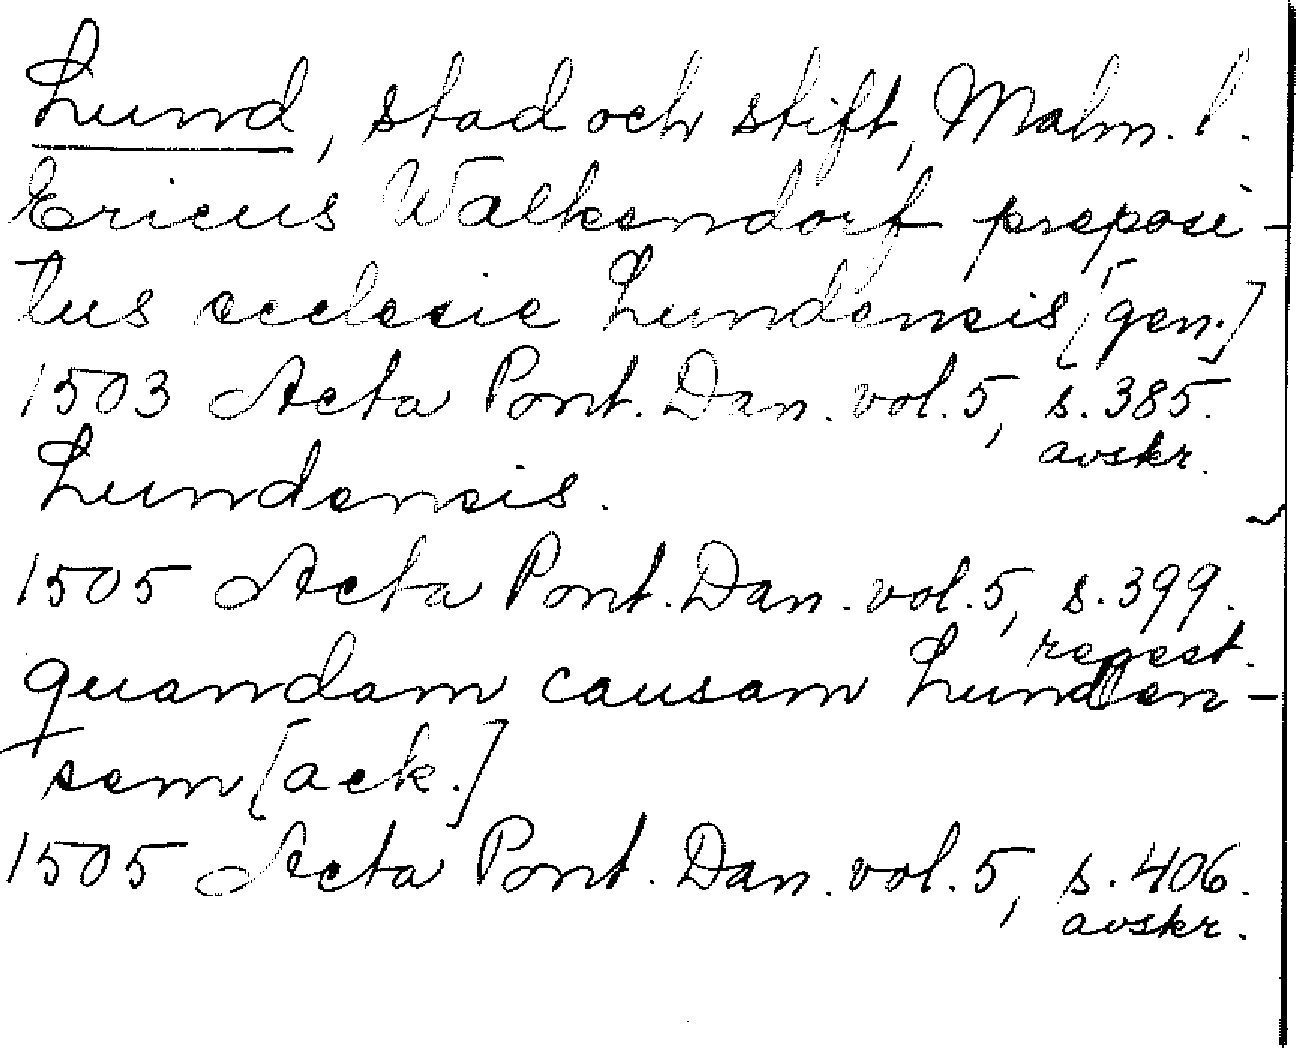 Lund, stad och stift, Malm. l.
Ericus Walkendorf preposi-
tus ecclesie Lundensis [gen.]
1503 Acta Pont. Dan. vol. 5, s. 385.
avskr.
Lundensis.
1505 Acta Pont. Dan. vol. 5, s. 399.
regest.
quandam causam Lunden-
sem [ack.]
1505 Acta Pont. Dan. vol. 5, s. 406.
avskr.